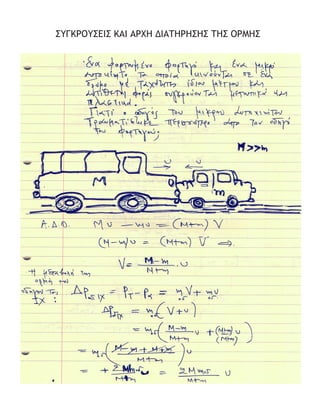 ΣΥΓΚΡΟΥΣΕΙΣ ΚΑΙ ΑΡΧΗ ΔΙΑΤΗΡΗΣΗΣ ΤΗΣ ΟΡΜΗΣ
Ενα φορτωμένο φορτηγό και ένα μικρό
αυτοκίνητο τα οποία κινούνται σε ένα
δρόμο με ταχύτητες ίδιου μέτρου και
αντίθετης φοράς συγκρούονται μετωπικά και
πλαστικά.
Γιατί ο οδηγός του μικρού αυτοκινήτου
τραυματίστηκε περισσότερο από τον οδηγό
του φορτηγού;
M>>m
υ υ
M m
Α.Δ.Ο. Mυ - mυ = (M+m) V
(M-m)υ = (M+m) V ⇒
V = M-m/M+m υ
Η μεταβολή της
ορμής του
οδηγού του ΔP = Pτ - Pα = m V + m υ
ΙΧ :
ΔP = m (V+υ)
= m ( M-m/M+m υ + (M+m)/(M+m) υ )
= m ( M-m+M+m/M+m ) υ
= + 2Mm/M+m υ = 2Mm/M+m υ